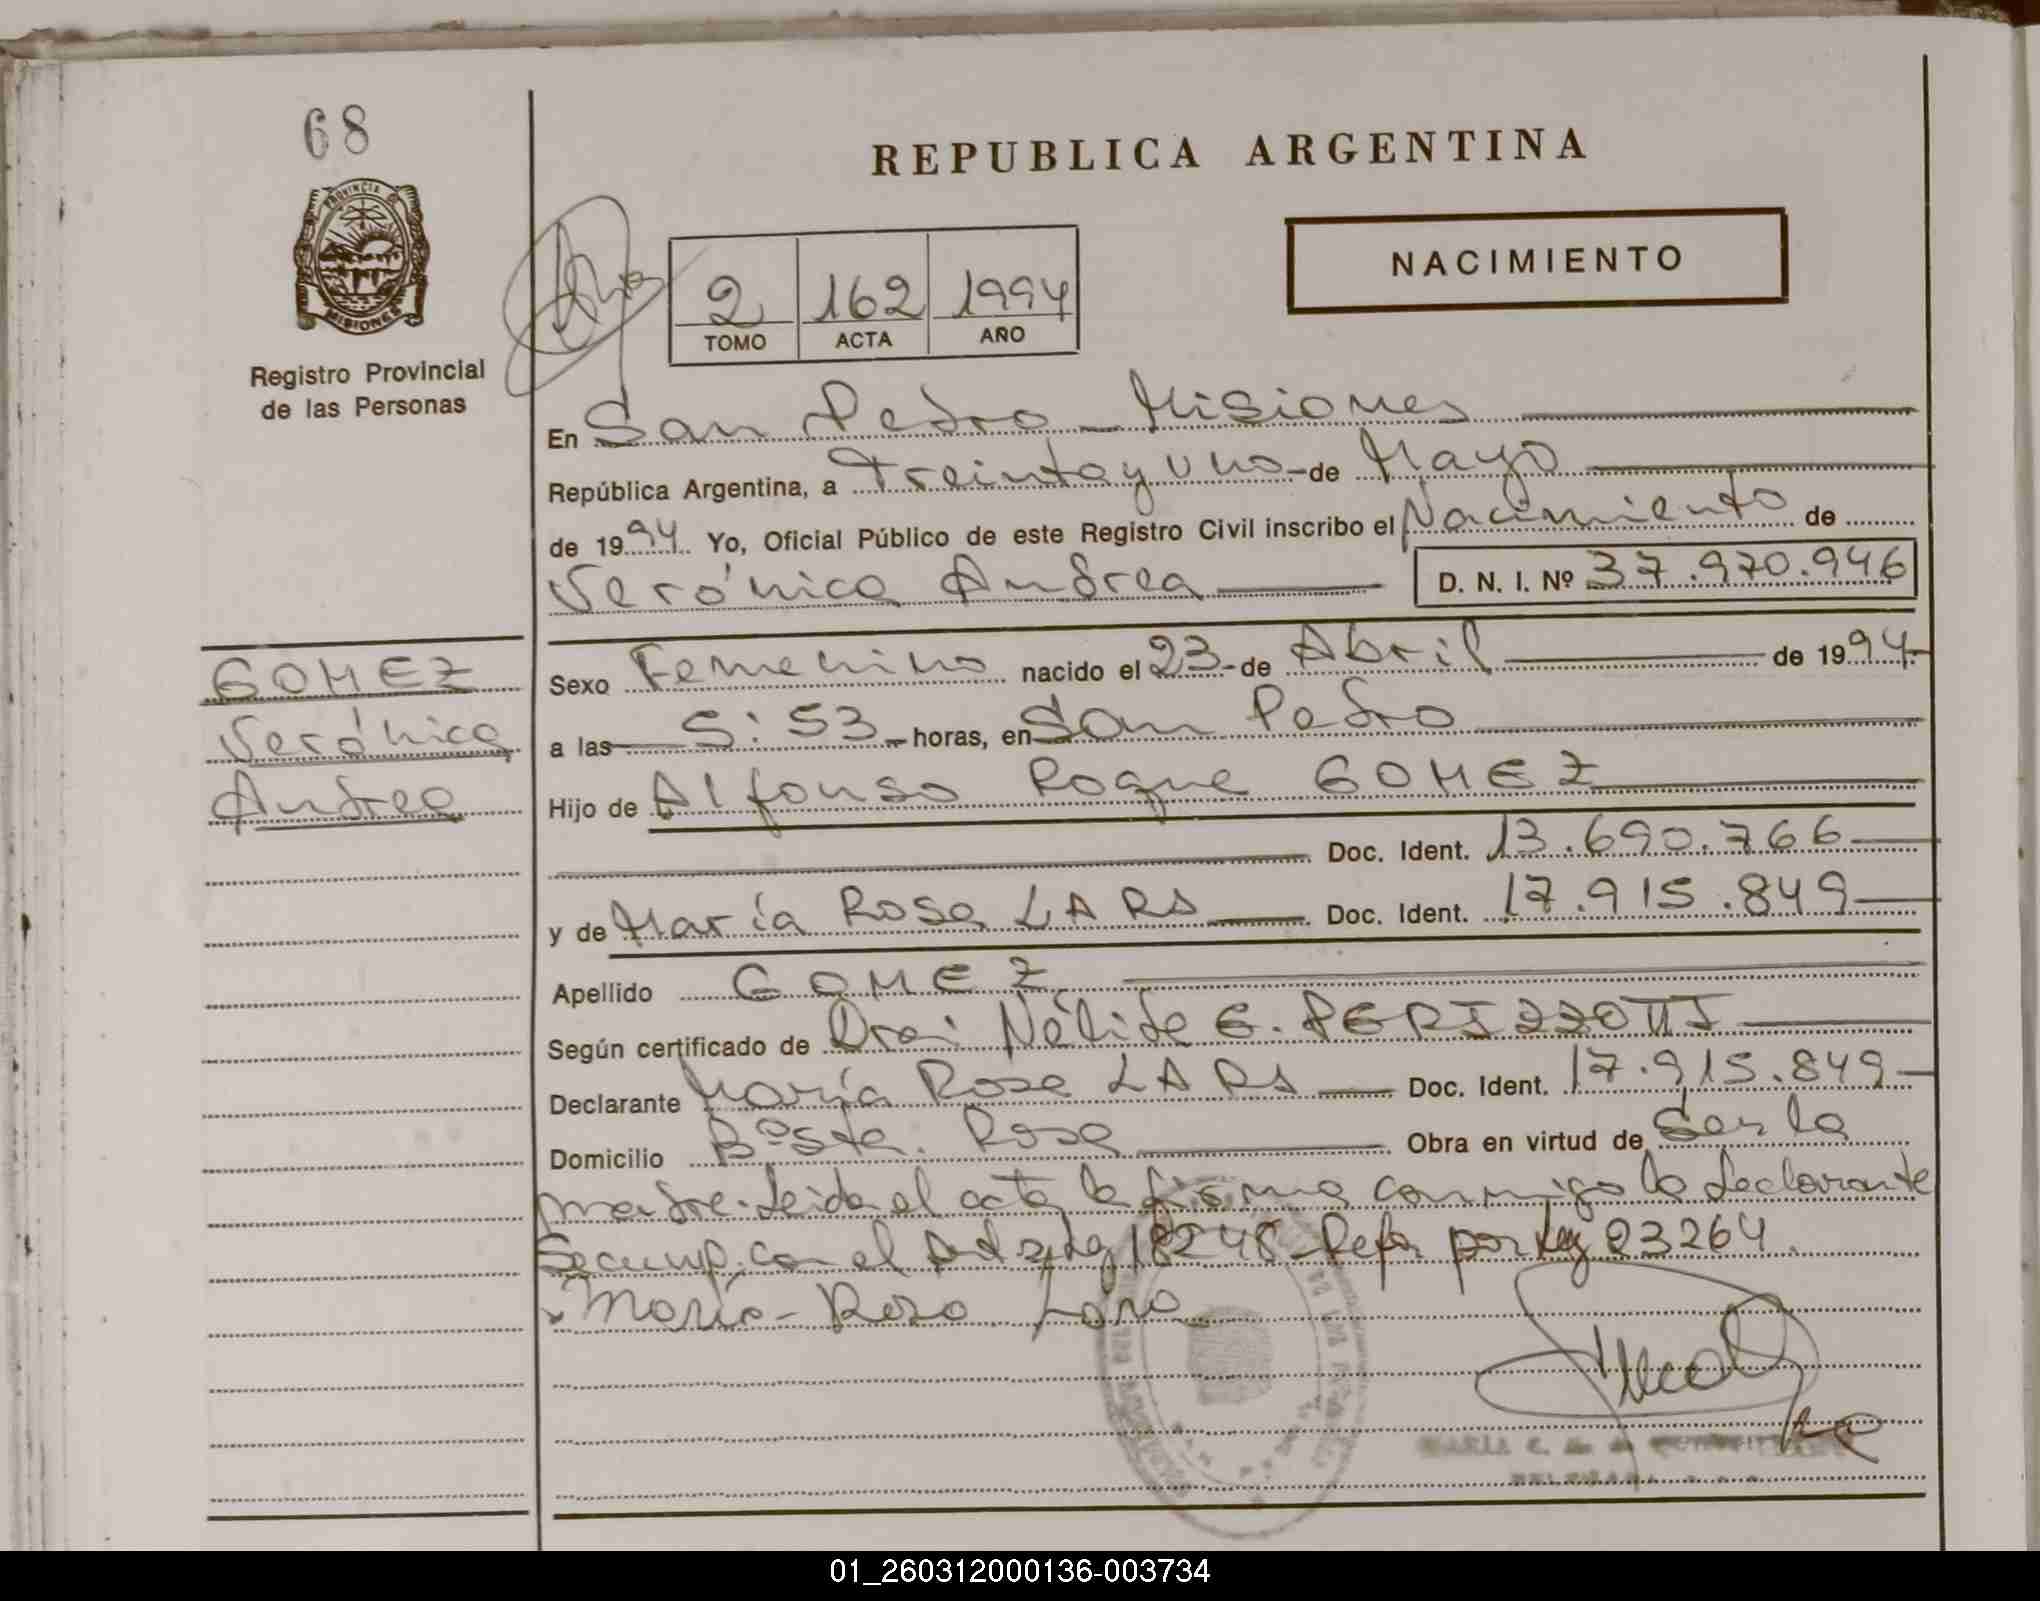 68
PROVINCIA DE
MISIONES
Registro Provincial
de las Personas
REPUBLICA ARGENTINA
NACIMIENTO
2 162 1994
TOMO ACTA AÑO
En San Pedro - Misiones
República Argentina, a Treinta y uno - de Mayo
de 1994 Yo, Oficial Público de este Registro Civil inscribo el Nacimiento de
Verónica Andrea D. N. I. Nº 37.970.946
GOMEZ
Verónica
Andrea
Sexo Femenino nacido el 23 - de Abril de 1994
a las 5:53 horas, en San Pedro
Hijo de Alfonso Roque GOMEZ
Doc. Ident. 13.690.766
y de María Rosa LARA Doc. Ident. 17.915.849
Apellido GOMEZ
Según certificado de Dra. Nélida E. PERIZZOTTI
Declarante María Rosa LARA Doc. Ident. 17.915.849
Domicilio Bº Sta. Rosa Obra en virtud de Ser la
madre. Leida el acta la firma conmigo la declarante
Se cump. con el Art 2 Ley 18248 - Refor por Ley 23264.
María Rosa Lara
MARIA C.
01_260312000136-003734